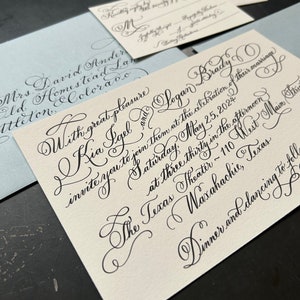 Mrs David Ander
Old Homestead Lan
ttleton, Colorado
M
With great pleasure
Kia Igel and Logan Brady
invite you to join them at the celebration of their marriage
Saturday, May 25, 2024
at three thirty in the afternoon
The Texas Theater ~ 110 West Main Street
Waxahachie, Texas
Dinner and dancing to follow